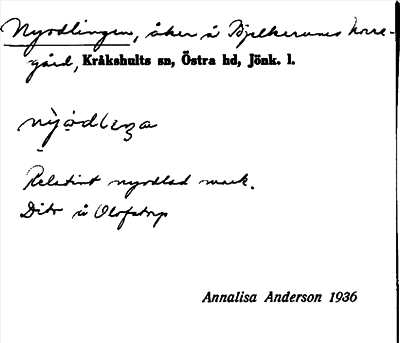 Nyodlingen, åker å Bjelkerums herre-
gård, Kråkshults sn, Östra hd, Jönk. l.
Relativt nyodlad mark.
Dito å Olofstorp
Annalisa Anderson 1936